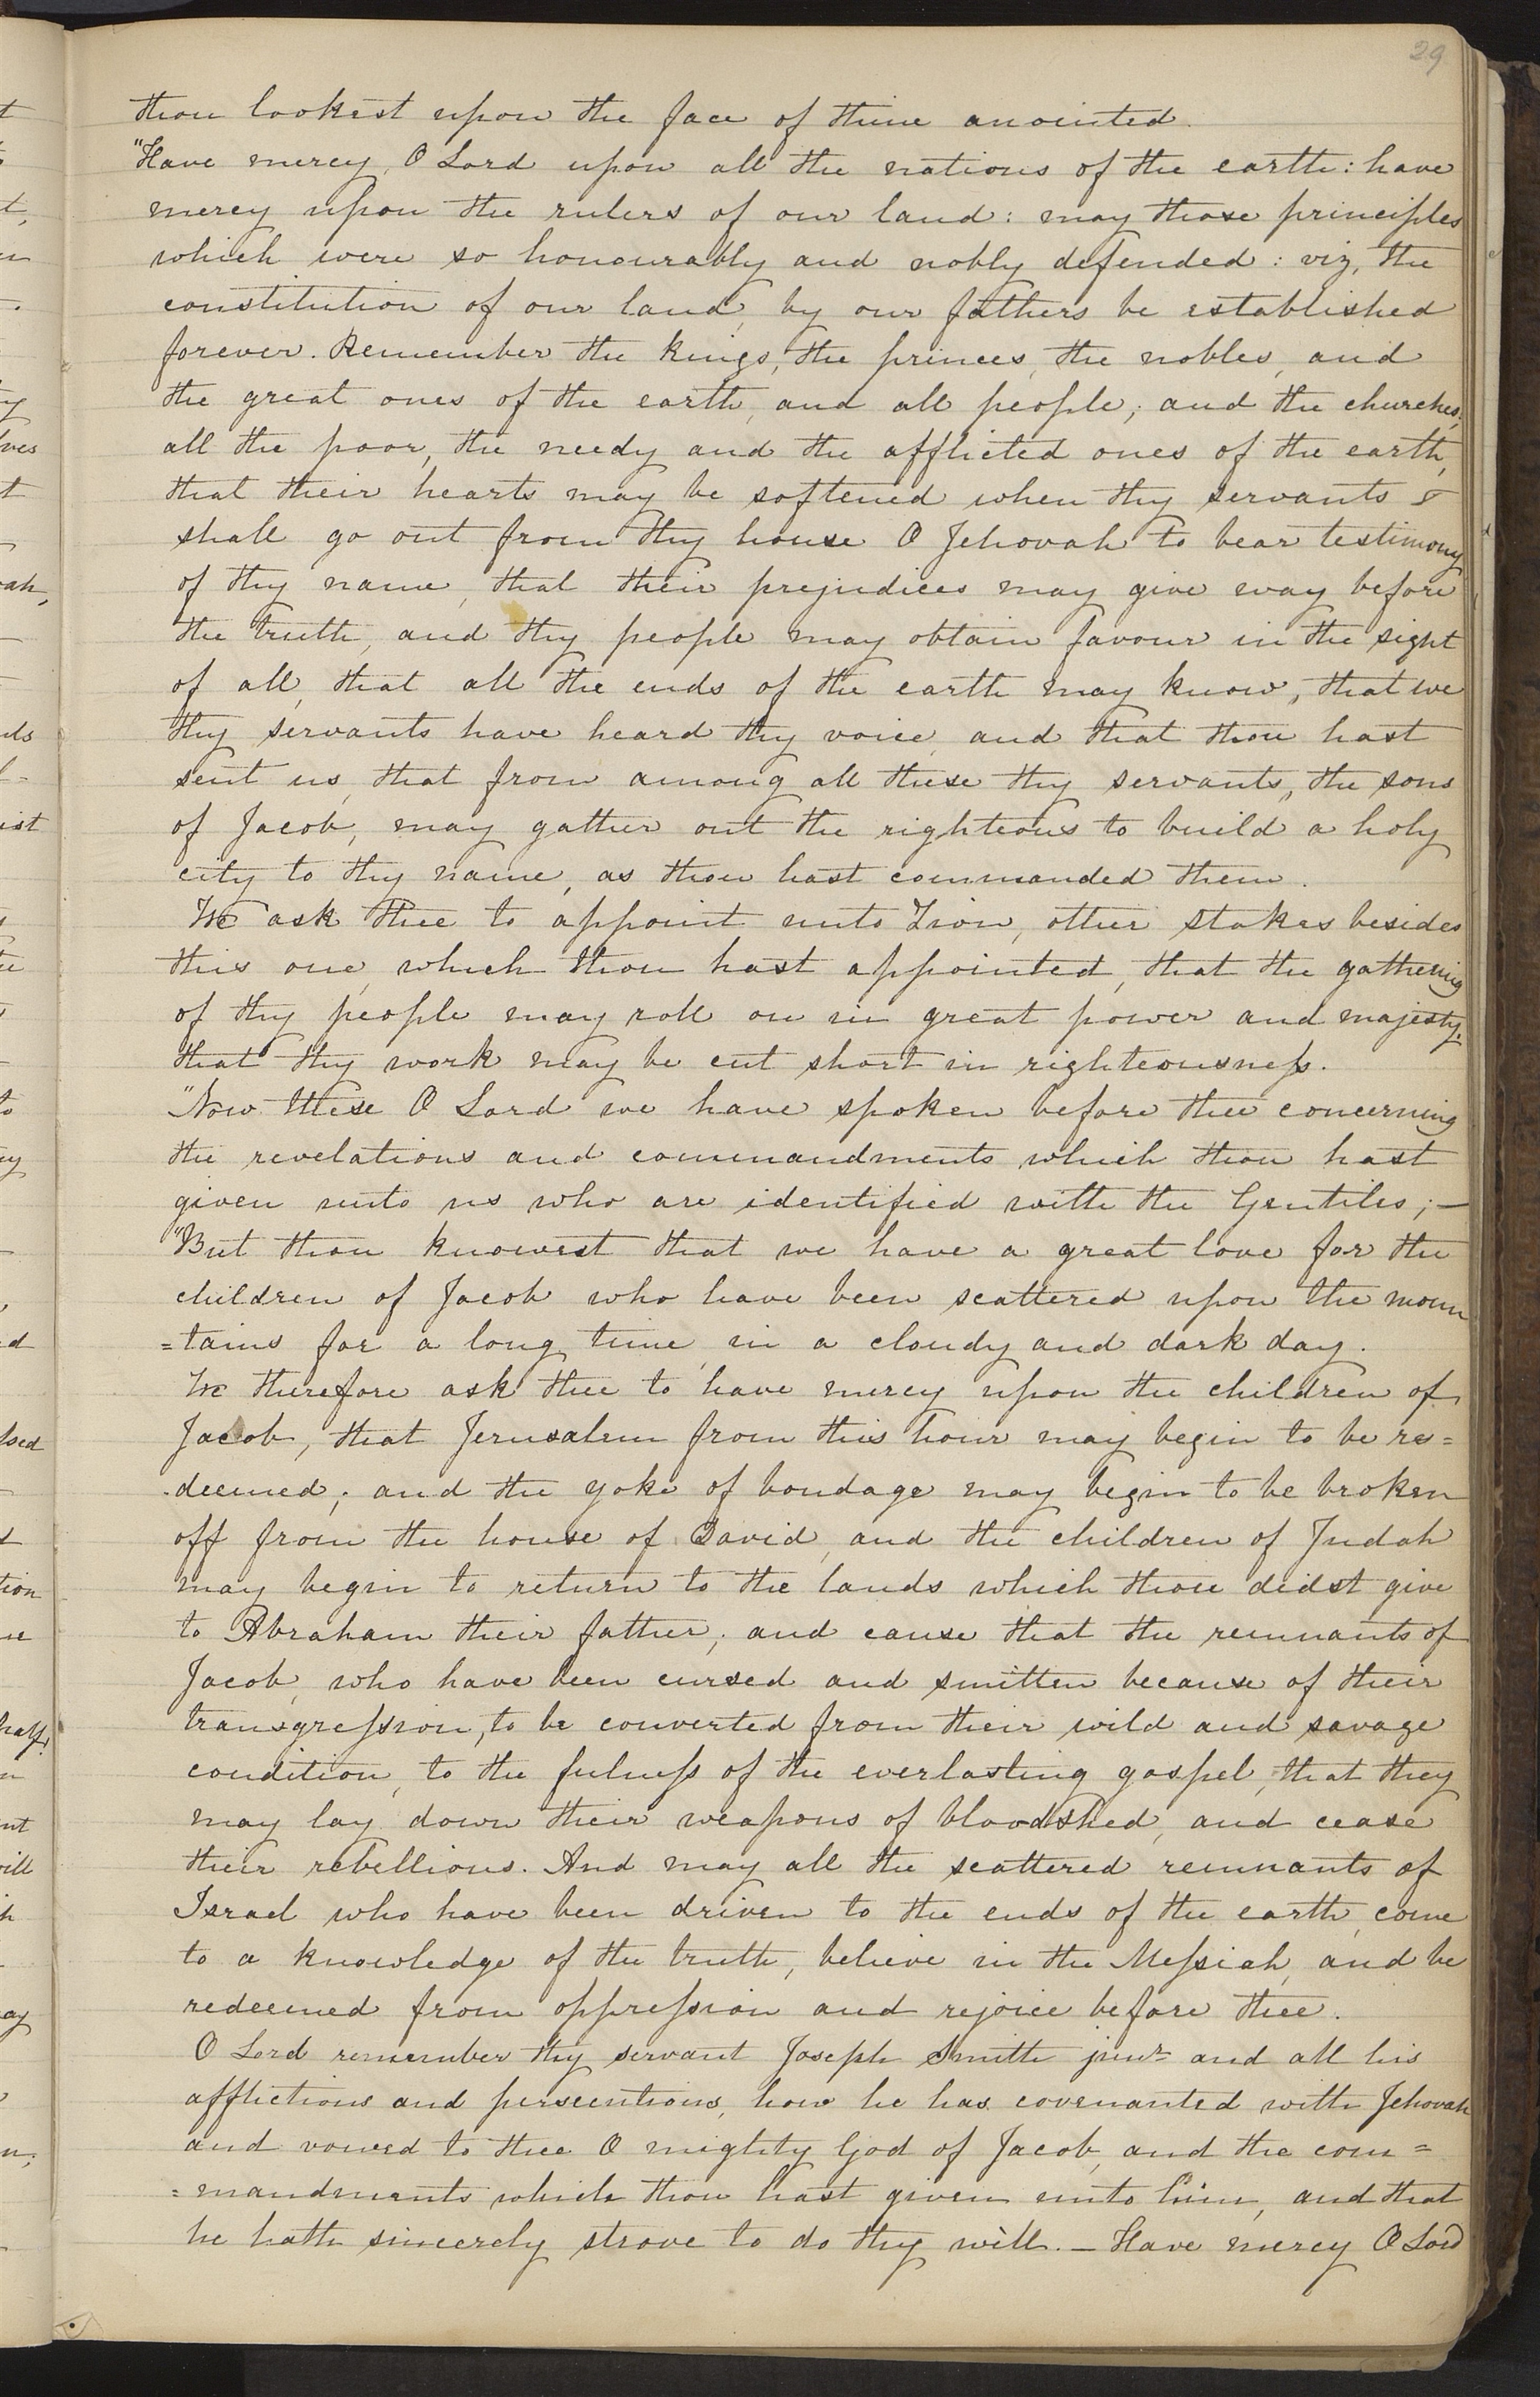 29
thou lookest upon the face of thine anointed.
"Have mercy, O Lord upon all the nations of the earth: have
mercy upon the rulers of our land: may those principles
which were so honourably and nobly defended: viz, the
constitution of our land, by our fathers be established
forever. Remember the kings, the princes, the nobles, and
the great ones of the earth, and all people; and the churches;
all the poor, the needy and the afflicted ones of the earth,
that their hearts may be softened when thy servants
shall go out from thy house O Jehovah to bear testimony
of thy name, that their prejudices may give way before
the truth, and thy people may obtain favour in the sight
of all, that all the ends of the earth may know, that we
thy servants have heard thy voice, and that thou hast
sent us, that from among all these thy servants, the sons
of Jacob, may gather out the righteous to build a holy
city to thy name, as thou hast commanded them.
We ask thee to appoint unto Zion, other stakes besides
this one, which thou hast appointed, that the gathering
of thy people may roll on in great power and majesty,
that thy work may be cut short in righteousness.
"Now these O Lord we have spoken before thee concerning
the revelations and commandments which thou hast
given unto us who are identified with the Gentiles;—
"But thou knowest that we have a great love for the
children of Jacob who have been scattered upon the moun
=tains for a long time, in a cloudy and dark day.
We therefore ask thee to have mercy upon the children of
Jacob, that Jerusalem from this hour may begin to be re=
deemed; and the yoke of bondage may begin to be broken
off from the house of David, and the children of Judah
may begin to return to the lands which thou didst give
to Abraham their father; and cause that the remnants of
Jacob, who have been cursed and smitten because of their
transgression, to be converted from their wild and savage
condition, to the fulness of the everlasting gospel, that they
may lay down their weapons of bloodshed, and cease
their rebellions. And may all the scattered remnants of
Israel who have been driven to the ends of the earth, come
to a knowledge of the truth, believe in the Messiah, and be
redeemed from oppression and rejoice before thee.
O Lord remember thy servant Joseph Smith junr and all his
afflictions and persecutions, how he has covenanted with Jehovah
and vowed to thee O mighty God of Jacob, and the com=
=mandments which thou hast given unto him, and that
he hath sincerely strove to do thy will.— Have mercy O Lord